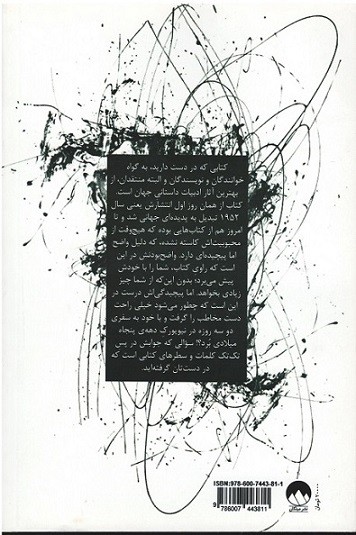 کتابی که در دست دارید، به گواه
خوانندگان و نویسندگان و البته منتقدان، از
بهترین آثار ادبیات داستانی جهان است.
کتاب از همان روز اول انتشارش یعنی سال
۱۹۵۲ تبدیل به پدیده‌ای جهانی شد و تا
امروز هم از کتاب‌هایی بوده که هیچ‌وقت از
محبوبیت‌اش کاسته نشده، که دلیل واضح
اما پیچیده‌ای دارد. واضح‌بودنش در این
است که راوی کتاب، شما را با خودش
پیش می‌برد؛ بدون این‌که از شما چیز
زیادی بخواهد. اما پیچیدگی‌اش درست در
این است که چطور می‌شود خیلی راحت
دست مخاطب را گرفت و با خود به سفری
دو سه روزه در نیویورک دهه‌ی پنجاه
میلادی بُرد؟! سوالی که جوابش در پس
تک‌تک کلمات و سطرهای کتابی است که
در دست‌تان گرفته‌اید.
ISBN: 978-600-7443-81-1
9 786007 443811
تومان